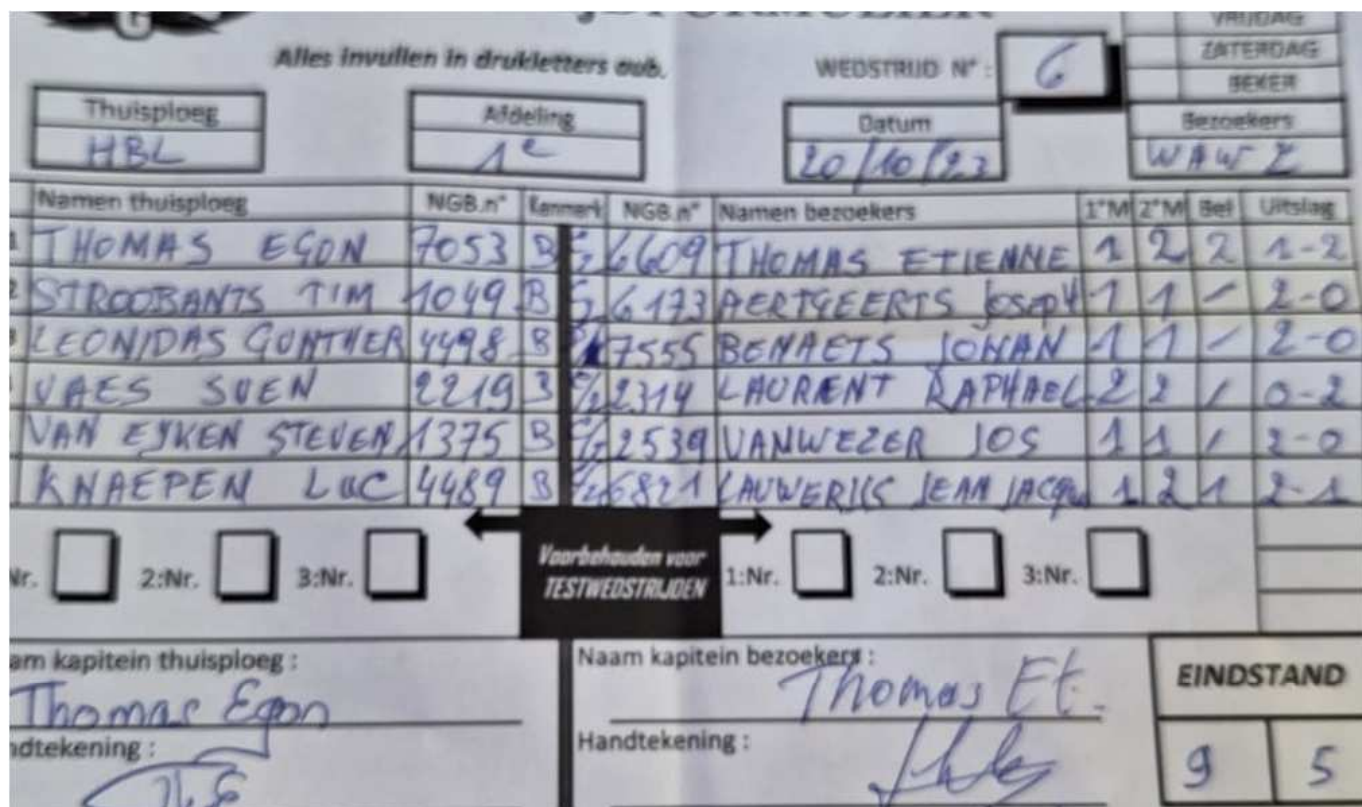 Alles invullen in drukletters aub.
WEDSTRIJD N° : 6
VRIJDAG
ZATERDAG
BEKER
Thuisploeg Afdeling Datum Bezoekers
HBL 1e 20/10/23 WAWZ
Namen thuisploeg NGB.n° Kenmerk NGB.n° Namen bezoekers 1°M 2°M Bel Uitslag
THOMAS EGON 7053 B 6609 THOMAS ETIENNE 1 2 2 1-2
STROOBANTS TIM 1049 B 6173 AERTGEERTS JOSEPH 1 1 - 2-0
LEONIDAS GUNTHER 4498 B 7555 BENAETS JOHAN 1 1 - 2-0
VAES SVEN 2219 B 2314 LAURENT RAPHAEL 2 2 / 0-2
VAN EYKEN STEVEN 1375 B 2539 VANWEZER JOS 1 1 / 2-0
KNAEPEN LUC 4489 B 6821 LAUWERIKS JEAN JACQU 1 2 1 2-1
Nr. 2:Nr. 3:Nr. Voorbehouden voor TESTWEDSTRIJDEN 1:Nr. 2:Nr. 3:Nr.
am kapitein thuisploeg : Naam kapitein bezoekers : EINDSTAND
Thomas Egon Thomas Et.
ndtekening : Handtekening : 9 5